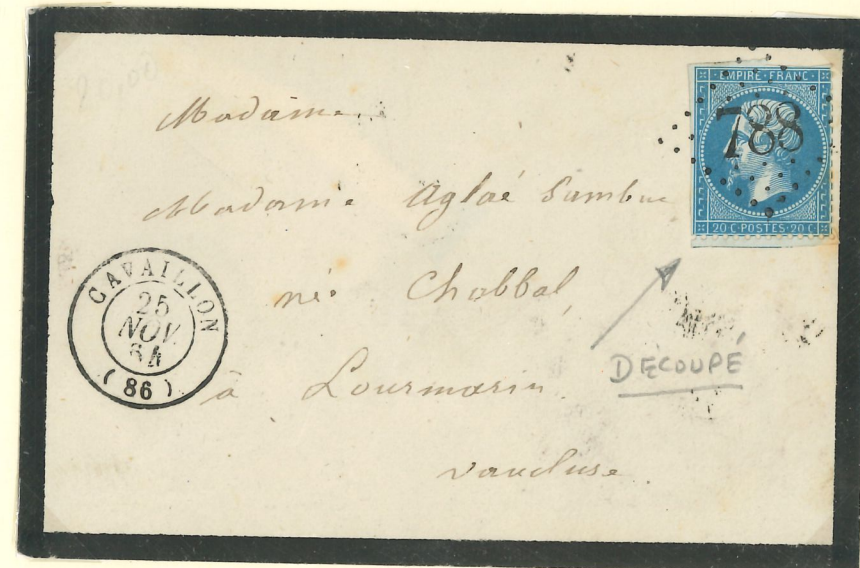 20,00
EMPIRE·FRANC·
788
20 C·POSTES·20 C
Madame
Madame Aglaé Sambuc
née Chabbal,
à Lourmarin
Vaucluse.
CAVAILLON
25
NOV.
64
(86)
DÉCOUPÉ